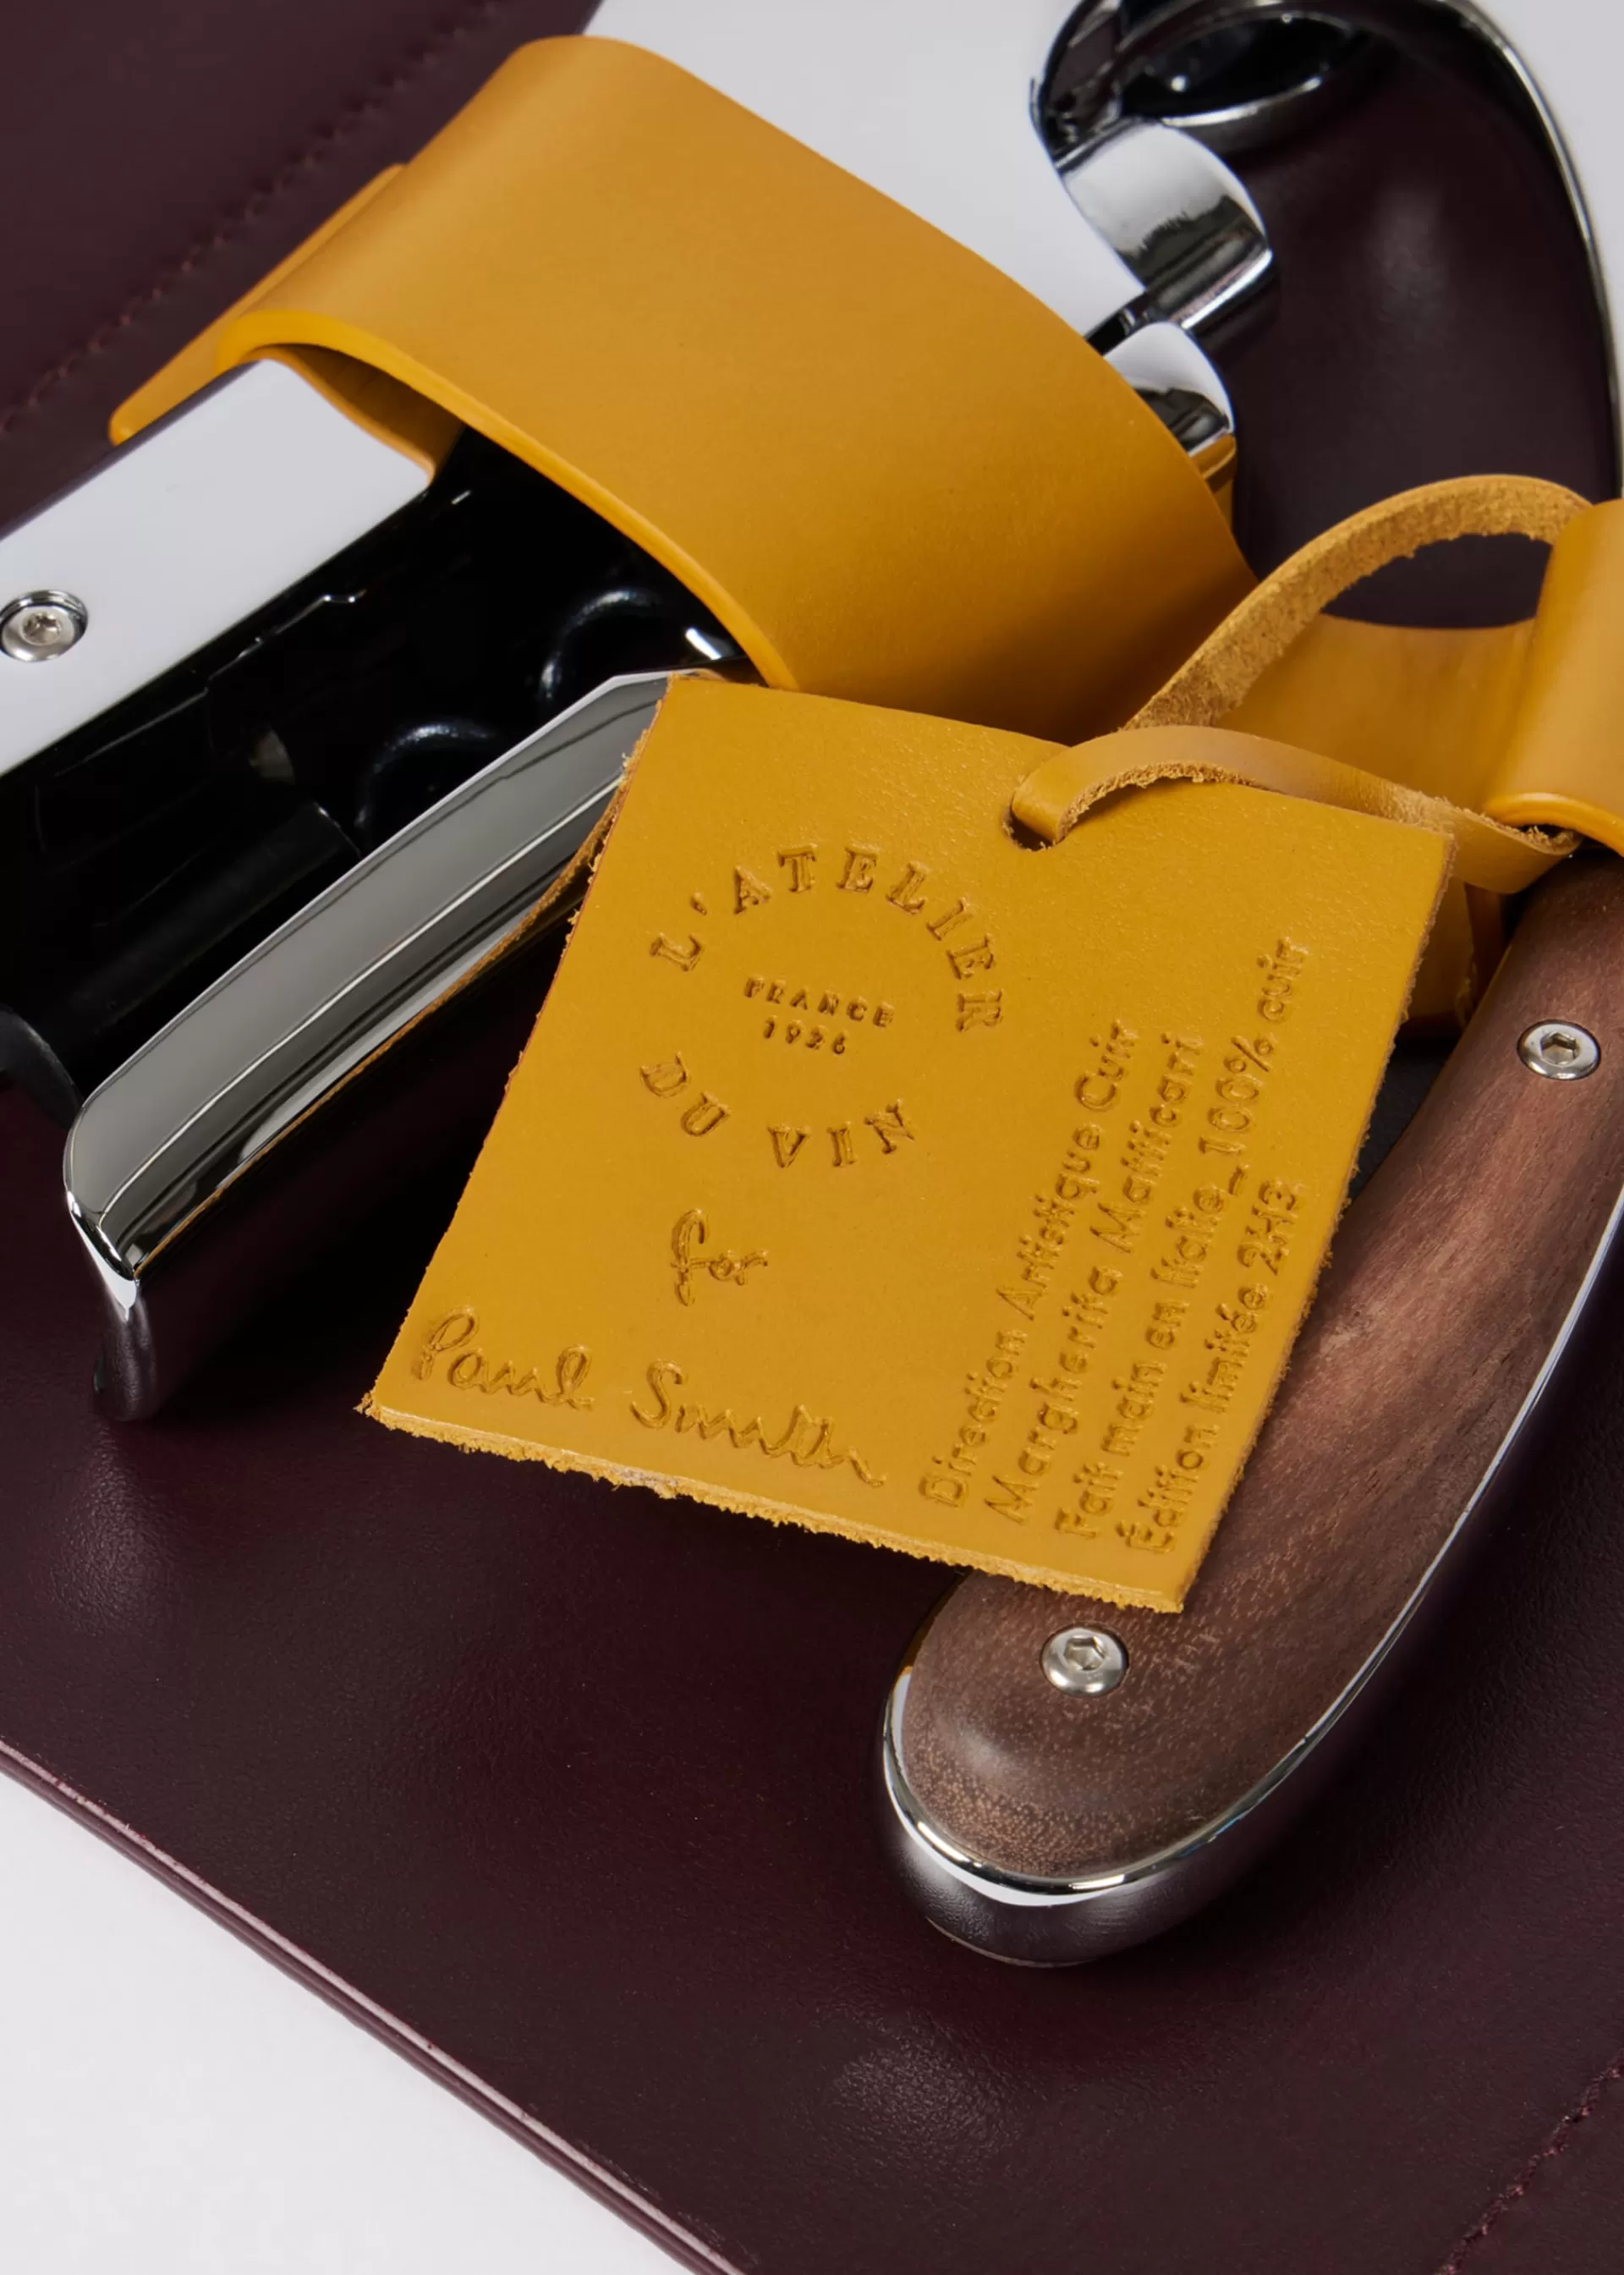 L'ATELIER
FRANCE
1926
DU VIN
for
Paul Smith
Direction Artistique Cuir
Margherita Mattiocari
Fait main en Italie_100% cuir
Édition limitée 2H3